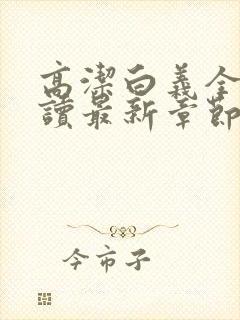 高潔白義全
讀最新章節
今市子